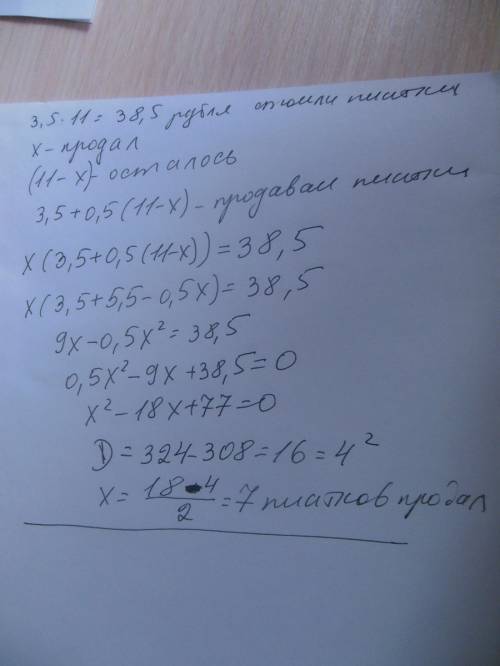 3,5·11 = 38,5 рубля стоили платки
х - продал
(11-х)- осталось
3,5+0,5(11-х) - продавал платки
х(3,5+0,5(11-х))=38,5
х(3,5+5,5-0,5х)=38,5
9х-0,5х²=38,5
0,5х²-9х+38,5=0
х²-18х+77=0
D=324-308=16=4²
х=\frac{18-4}{2}=7 платков продал